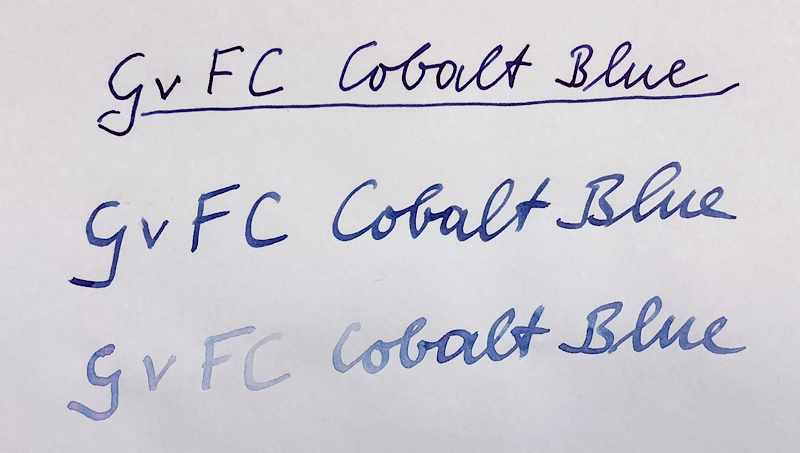 GvFC Cobalt Blue
GvFC Cobalt Blue
GvFC Cobalt Blue